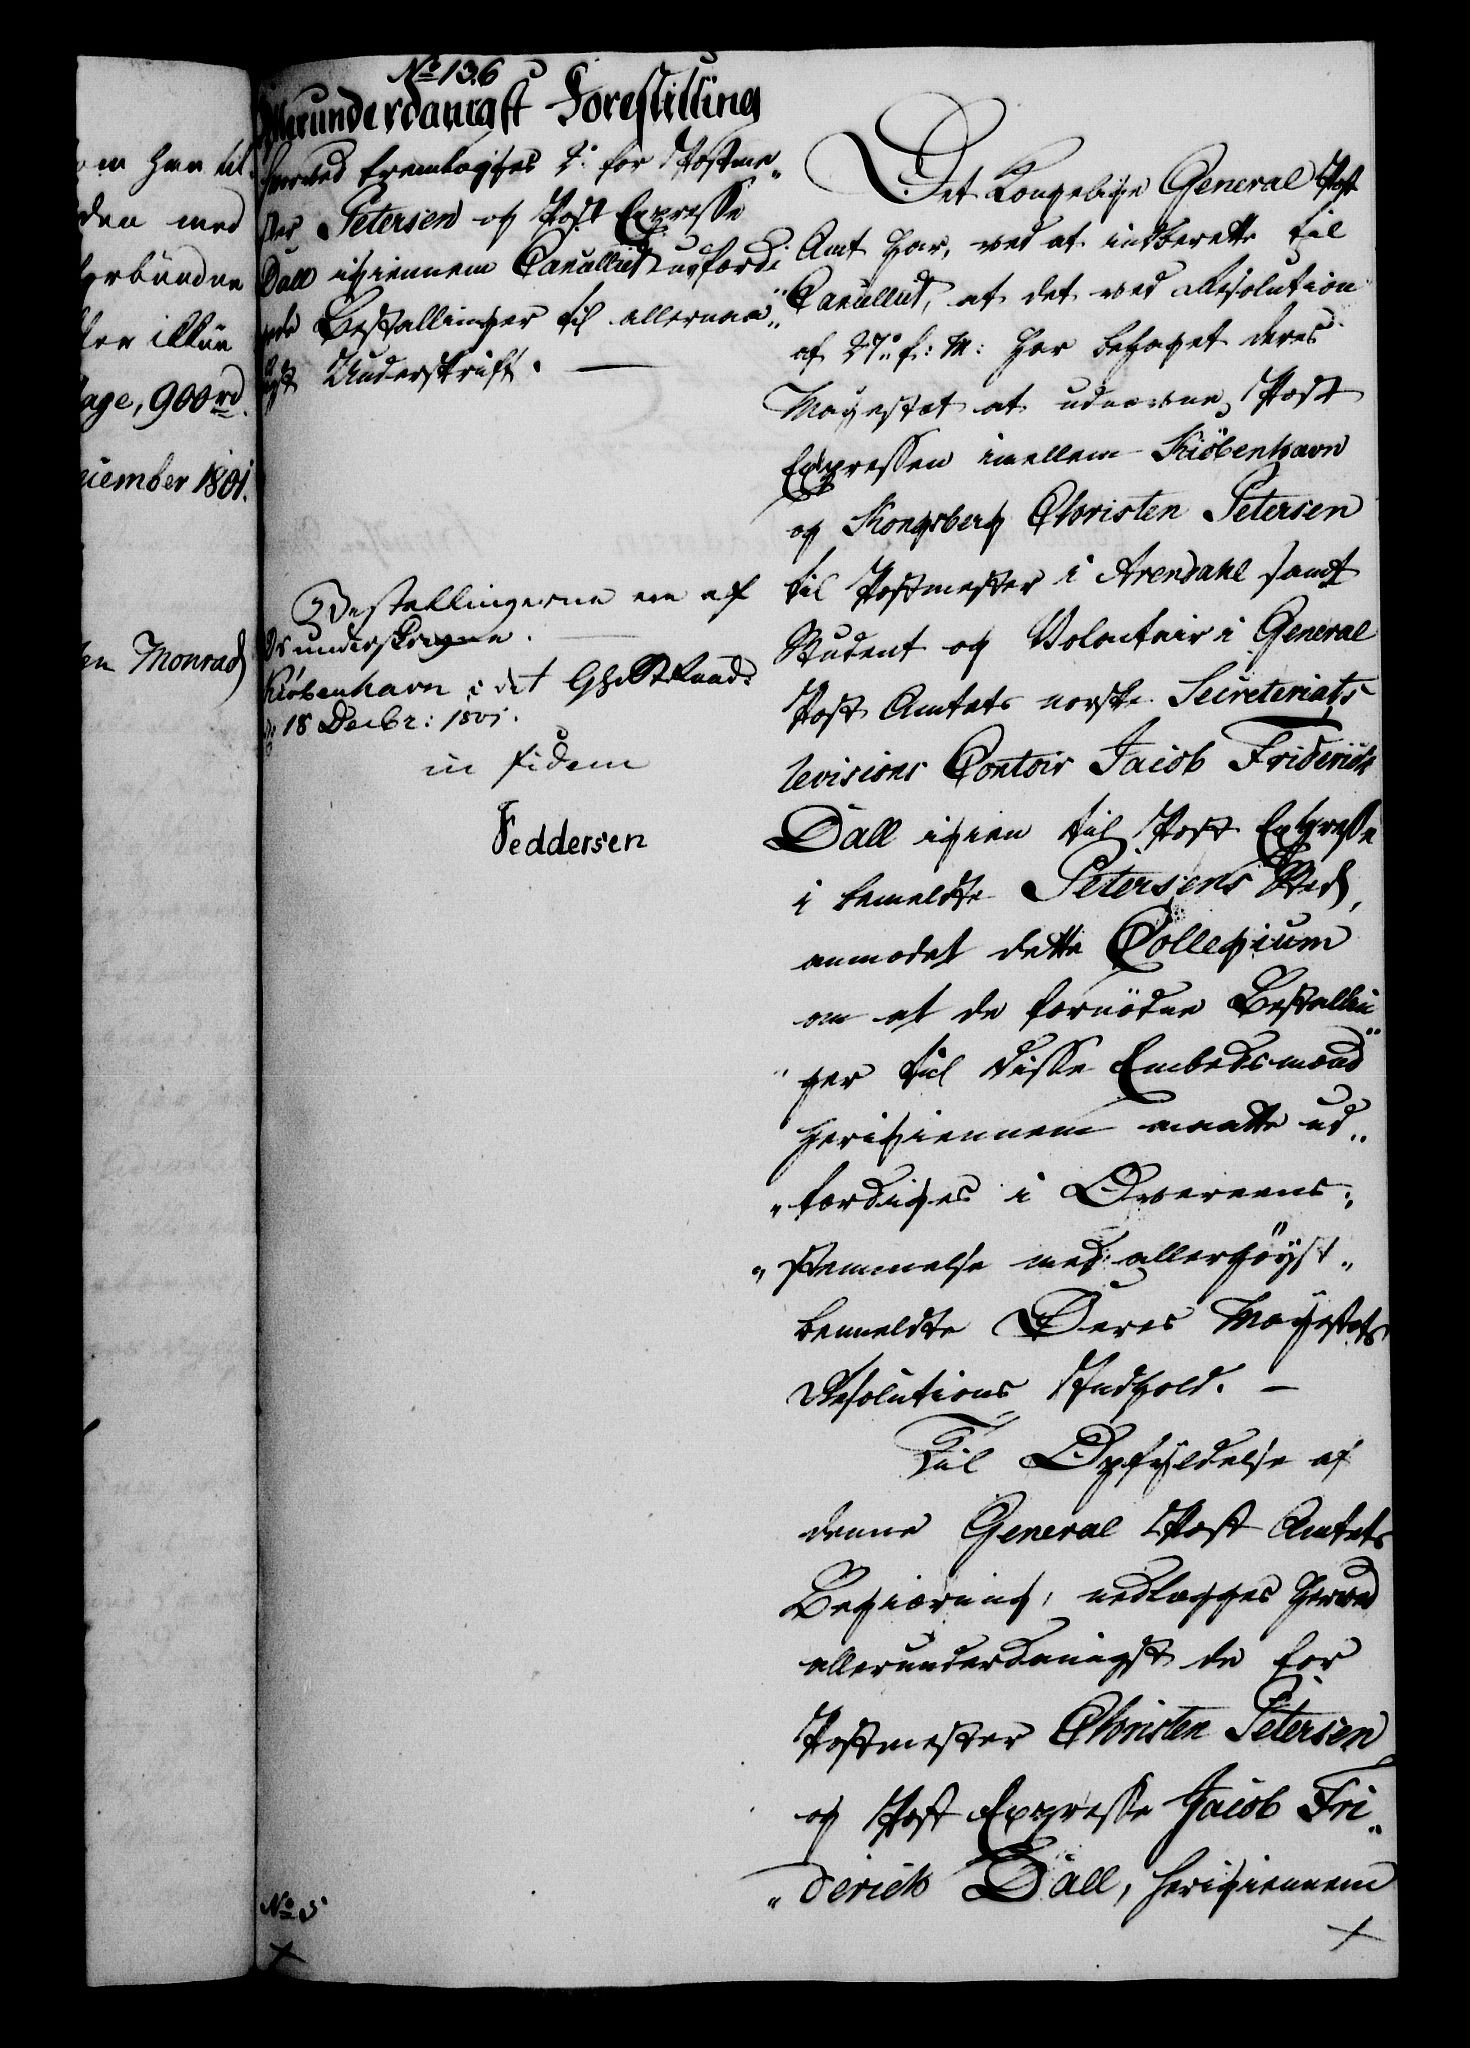 om han til
den med
forbundne
ller ikkun
age, 900 rd.
ecember 1801.
en Monrad
No 136
Allerunderdanigst Forestilling
hvorved fremlægges 2de for Postme„
ster Petersen og Post Expresse
Dall igiennem Cancelliet udfærdi
gede Bestallinger til allernaa„
digst Underskrift. —
Bestallingerne ere af
Os underskrevne. —
Kiöbenhavn i det Gh: St: Raad:
d: 18 Decbr: 1801.
in fidem
Feddersen
No 5
Det Kongelige General Post
Amt har, ved at indberette til
Cancelliet, at det ved Resolution
af 27de f: M: har behaget Deres
Mayestæt at udnævne Post
Expressen imellem Kiöbenhavn
og Kongsberg Christen Petersen
til Postmester i Arendahl samt
Student og Volontair i General
Post Amtets norske Secreteriats
Revisions Contoir Jacob Friderich
Dall igien til Post Expresse
i bemeldte Petersens Sted,
anmodet dette Collegium
om at de fornödne Bestallin„
„ger til disse Embedsmænd
herigiennem maatte ud„
„færdiges i Overeens„
„stemmelse med allerhöyst„
bemeldte Deres Mayestæts
Resolutions Indhold. —
Til Opfyldelse af
denne General Post Amtets
Begiæring, nedlægges herved
allerunderdanigst de for
Postmester Christen Petersen
og Post Expresse Jacob Fri„
„derich Dall, herigiennem